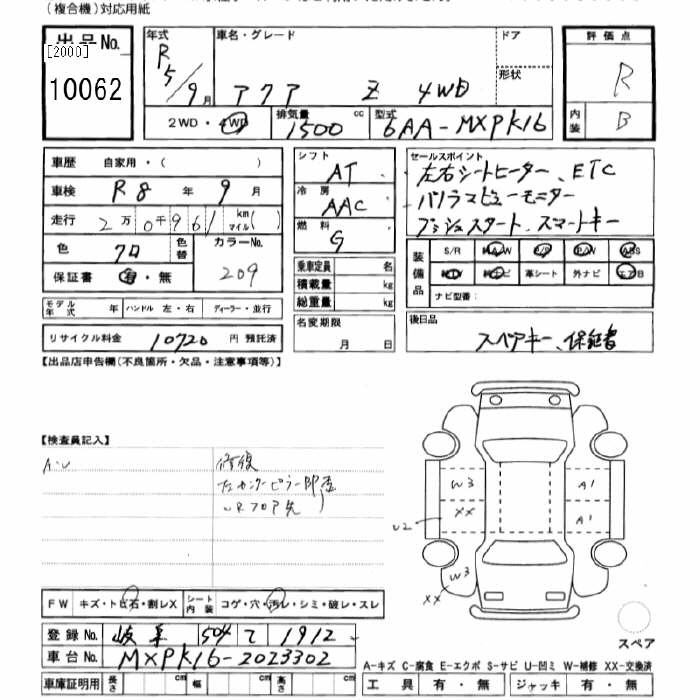 (複合機)対応用紙
出品No. [2000] 10062
年式 R5/9月 車名・グレード アクア Z 4WD ドア 形状
2WD・4WD 排気量 1500 cc 型式 6AA-MXPK16
評価点 R
内装 B
車歴 自家用・( )
車検 R8年 9月
走行 2万0千961 km マイル( )
色 クロ 色替 カラーNo. 209
保証書 有・無
モデル年式 年 ハンドル 左・右 ディーラー・並行
リサイクル料金 10720 円 預託済
シフト AT
冷房 AAC
燃料 G
乗車定員 名
積載量 kg
総重量 kg
名変期限 月 日
セールスポイント
左右シートヒーター、ETC
パノラマビューモニター
プッシュスタート、スマートキー
装備品 S/R 純A/W P/S P/W ABS
純TV 純ナビ 革シート 外ナビ エアB
ナビ型番:
後日品
スペアキー、保証書
【出品店申告欄(不良箇所・欠品・注意事項等)】
【検査員記入】
A・U
修復
左センターピラー
リRフロア先
W3 A1
XX A1
U2
W3
XX
スペア
FW キズ・トビ石・割レX シート内装 コゲ・穴・汚レ・シミ・破レ・スレ
登録No. 岐阜 504 て 1912
車台No. MXPK16-2023302
車庫証明用 長さ cm 幅 cm 高さ cm
A-キズ C-腐食 E-エクボ S-サビ U-凹ミ W-補修 XX-交換済
工具 有・無 ジャッキ 有・無